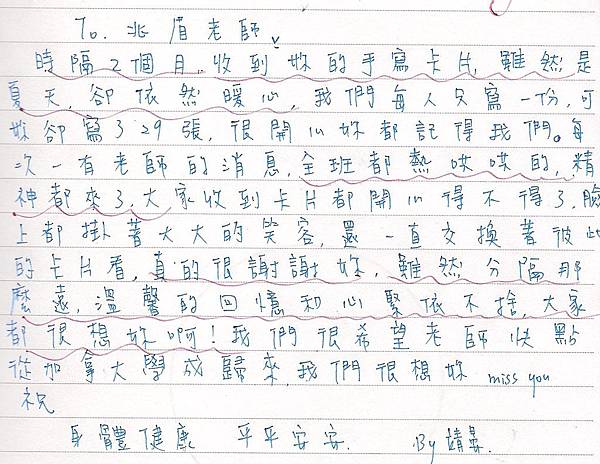 To. 北眉老師、
時隔2個月,收到妳的手寫卡片,雖然是
夏天,卻依然暖心,我們每人只寫一份,可
妳卻寫了29張,很開心妳都記得我們。每
次一有老師的消息,全班都熱哄哄的,精
神都來了,大家收到卡片都開心得不得了,臉
上都掛著大大的笑容,還一直交換著彼此
的卡片看,真的很謝謝妳,雖然分隔那
麼遠,溫馨的回憶和心緊依不捨,大家
都很想妳啊!我們很希望老師快點
從加拿大學成歸來,我們很想妳 miss you
祝
身體健康 平平安安. By 婧